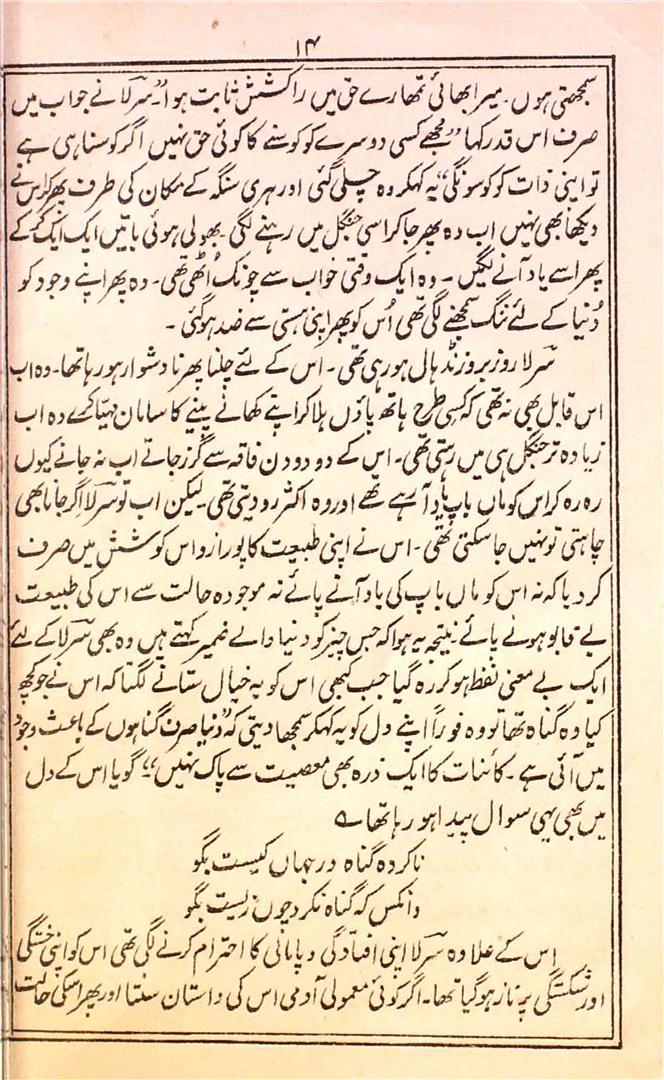 ۱۴
سمجھتی ہوں۔ میرا بھائی تمھارے حق میں راکشش ثابت ہوا" سرَلا نے جواب میں
صرف اس قدر کہا "مجھے کسی دوسرے کو کوسنے کا کوئی حق نہیں اگر کوسنا ہی ہے
تو اپنی ذات کو کوسونگی" یہ کہکر وہ چلی گئی اور ہری سنگہ کے مکان کی طرف پھر کر اس نے
دیکھا بھی نہیں اب وہ پھر جا کر اسی جنگل میں رہنے لگی۔ بھولی ہوئی باتیں ایک ایک کر کے
پھر اسے یاد آنے لگیں۔ وہ ایک وقتی خواب سے چونک اُٹھی تھی۔ وہ پھر اپنے وجود کو
دُنیا کے لئے ننگ سمجھنے لگی تھی اُس کو پھر اپنی ہستی سے ضد ہو گئی۔
سرَلا روز بروز نڈھال ہو رہی تھی۔ اس کے لئے چلنا پھرنا دشوار ہو رہا تھا۔ وہ اب
اس قابل بھی نہ تھی کہ کسی طرح ہاتھ پاؤں ہلا کر اپنے کھانے پینے کا سامان مہیّا کرے وہ اب
زیادہ تر جنگل ہی میں رہتی تھی۔ اس کے دو دو دن فاقہ سے گزر جاتے اب نہ جانے کیوں
رہ رہ کر اس کو ماں باپ یاد آ رہے تھے اور وہ اکثر رو دیتی تھی۔ لیکن اب تو سرَلا اگر جانا بھی
چاہتی تو نہیں جا سکتی تھی۔ اس نے اپنی طبیعت کا پورا زور اس کوشش میں صرف
کر دیا کہ نہ اس کو ماں باپ کی یاد آنے پائے نہ موجودہ حالت سے اس کی طبیعت
بے قابو ہونے پائے نتیجہ یہ ہوا کہ جس چیز کو دنیا والے ضمیر کہتے ہیں وہ بھی سرَلا کے لئے
ایک بے معنی لفظ ہو کر رہ گیا جب کبھی اس کو یہ خیال ستانے لگتا کہ اس نے جو کچھ
کیا وہ گناہ تھا تو وہ فوراً اپنے دل کو یہ کہکر سمجھا دیتی کہ "دُنیا صرف گناہوں کے باعث وجود
میں آئی ہے۔ کائنات کا ایک ذرہ بھی معصیت سے پاک نہیں" گویا اس کے دل
میں بھی یہی سوال پیدا ہو رہا تھا ؎
ناکردہ گناہ در جہاں کیست بگو
وانکس کہ گناہ نکرد چوں زیست بگو
اس کے علاوہ سرَلا اپنی افتادگی و پامالی کا احترام کرنے لگی تھی اس کو اپنی خستگی
اور شکستگی پر ناز ہو گیا تھا۔ اگر کوئی معمولی آدمی اس کی داستان سنتا اور پھر اسکی حالت